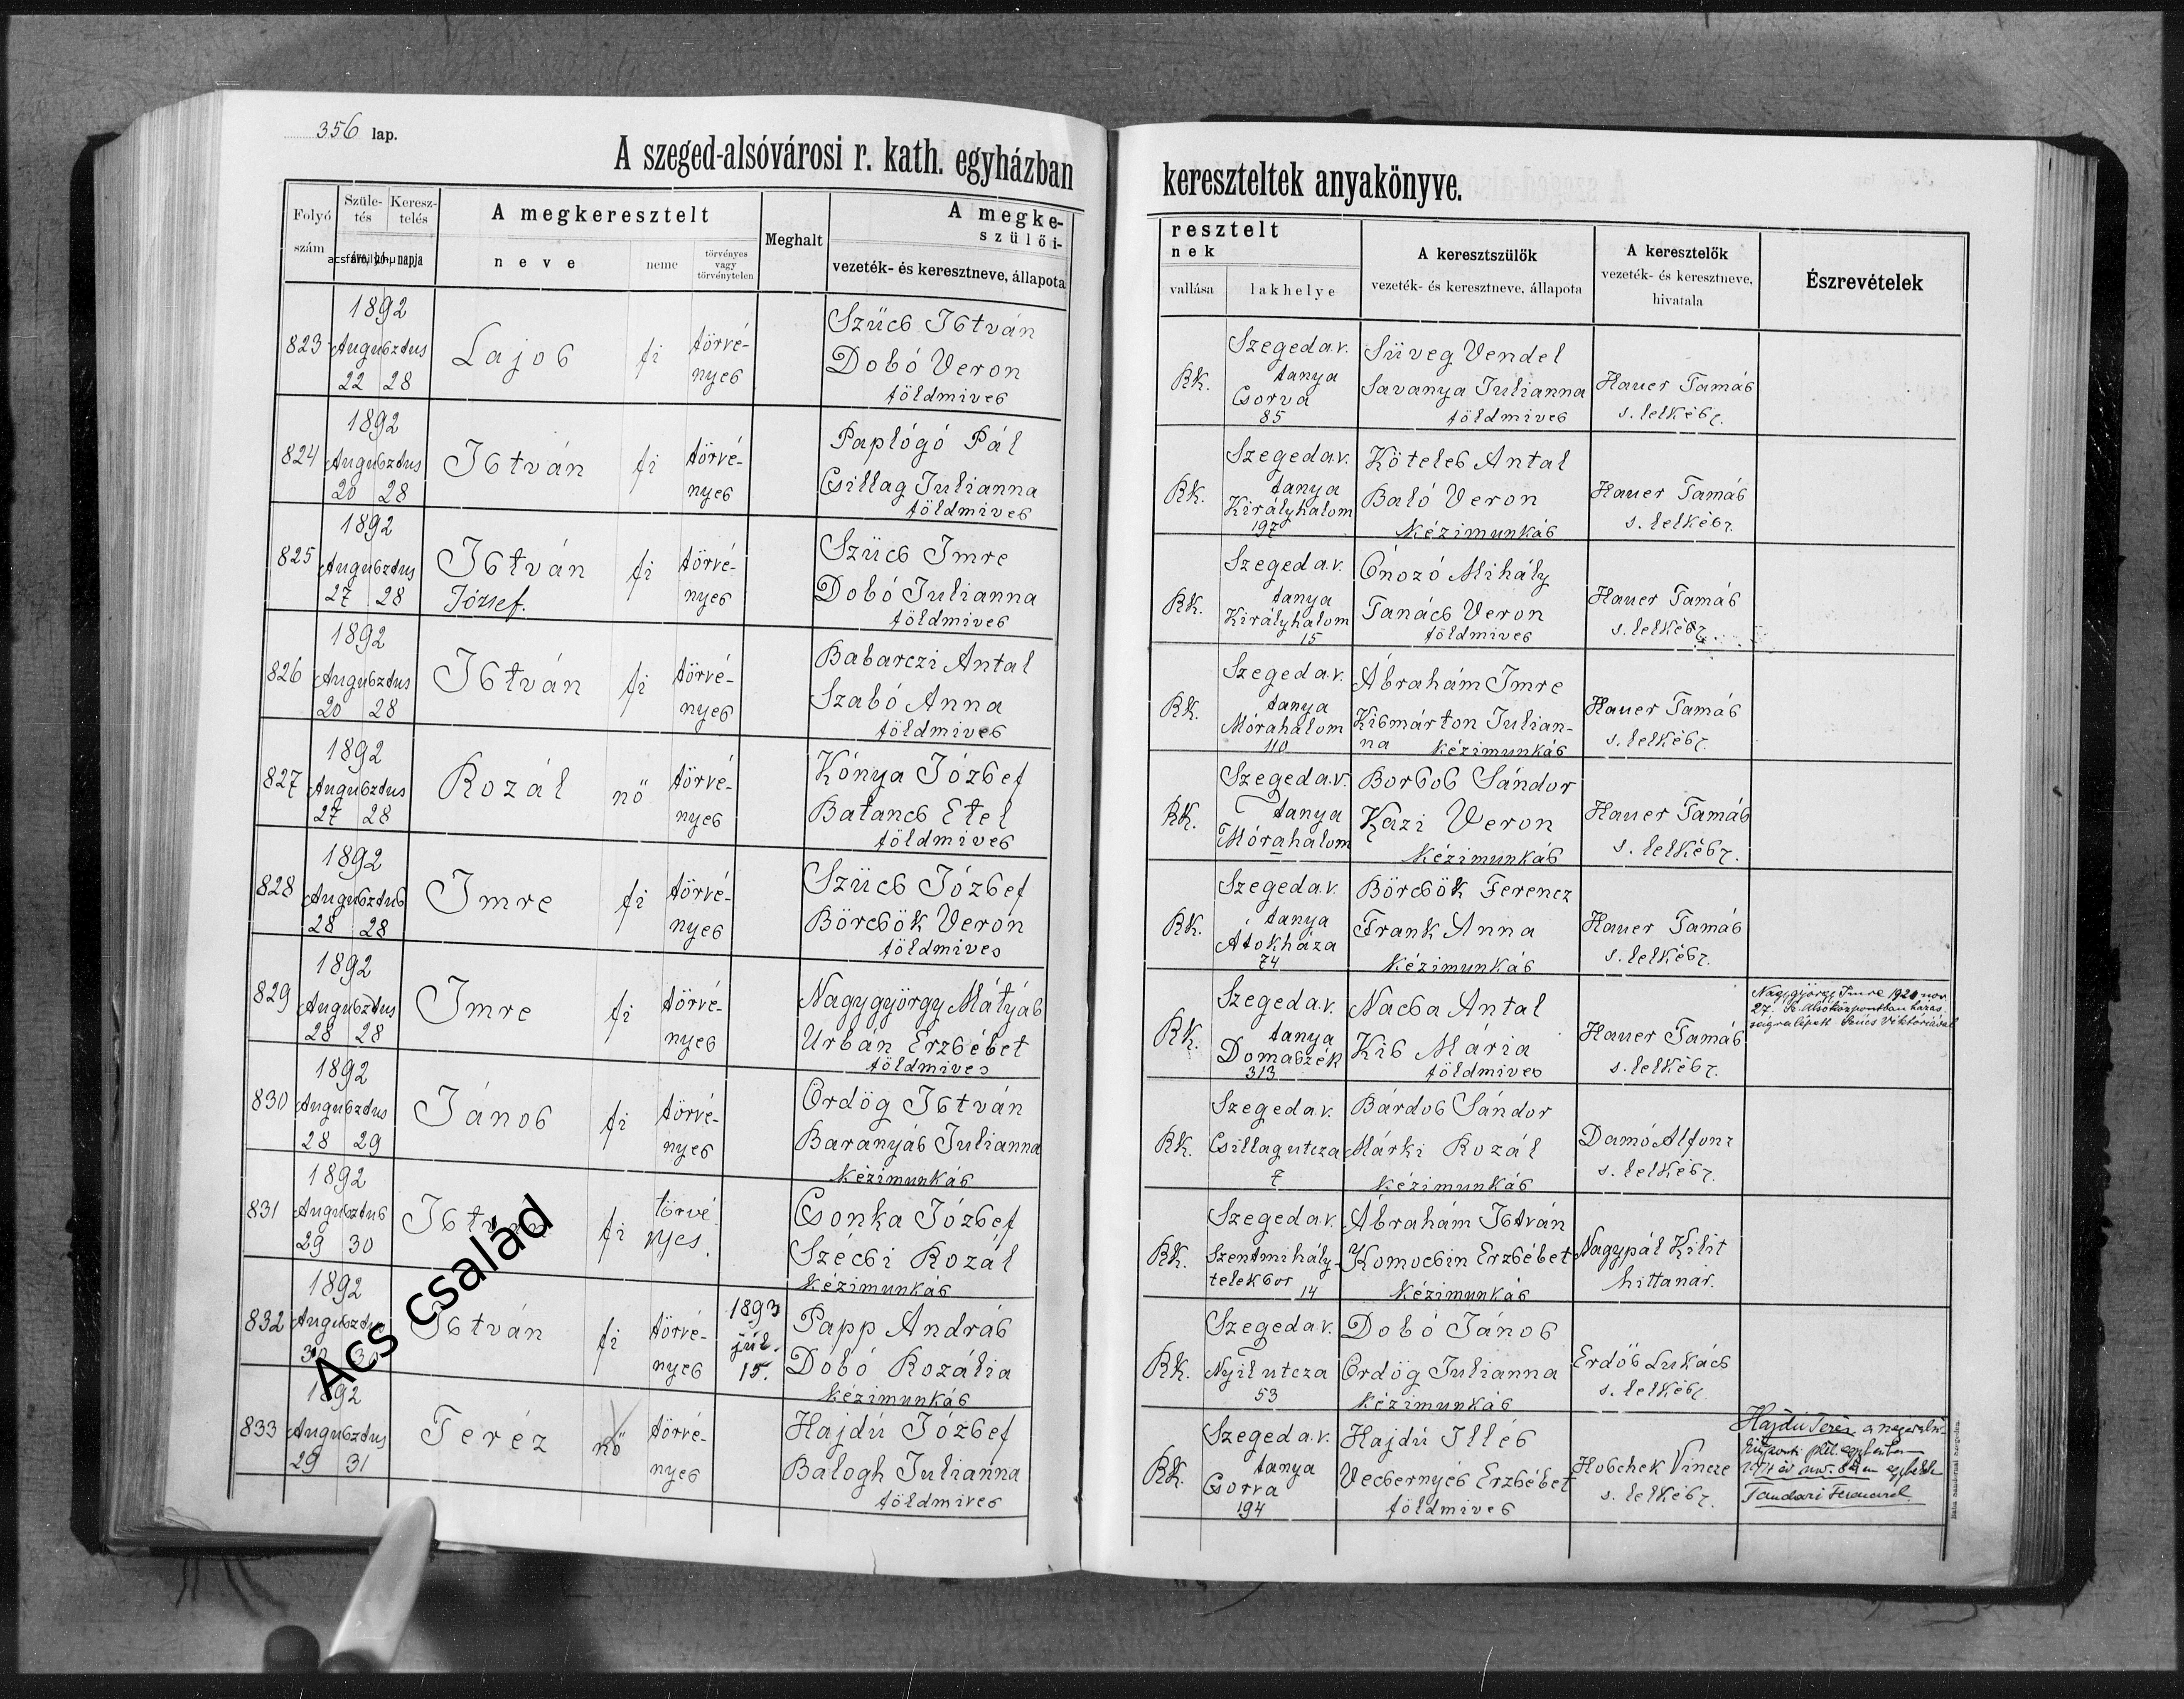 356 lap.
A szeged-alsóvárosi r. kath. egyházban kereszteltek anyakönyve.
Folyó szám
Születés
Keresztelés
A megkeresztelt
neve
neme
törvényes vagy törvénytelen
Meghalt
A megke-
szülői-
vezeték- és keresztneve, állapota
resztelt
nek
vallása
lakhelye
A keresztszülők
vezeték- és keresztneve, állapota
A keresztelők
vezeték- és keresztneve,
hivatala
Észrevételek
823 1892 Augusztus 22 28 Lajos fi törvé-nyes Szücs István Dobó Veron földmives RK. Szeged a.v. tanya Csorva 85 Süveg Vendel Savanya Julianna földmives Hauer Tamás s. lelkész.
824 1892 Augusztus 20 28 István fi törvé-nyes Paplógó Pál Csillag Julianna földmives RK. Szeged a.v. tanya Királyhalom 197 Köteles Antal Baló Veron Kézimunkás Hauer Tamás s. lelkész.
825 1892 Augusztus 27 28 István József. fi törvé-nyes Szücs Imre Dobó Julianna földmives RK. Szeged a.v. tanya Királyhalom 15 Ónozó Mihály Tanács Veron földmives Hauer Tamás s. lelkész.
826 1892 Augusztus 20 28 István fi törvé-nyes Babarczi Antal Szabó Anna földmives RK. Szeged a.v. tanya Mórahalom 110 Ábrahám Imre Kismárton Julian-na Kézimunkás Hauer Tamás s. lelkész.
827 1892 Augusztus 27 28 Rozál nö törvé-nyes Kónya József Balancs Etel földmives RK. Szeged a.v. tanya Mórahalom Borbos Sándor Kazi Veron Kézimunkás Hauer Tamás s. lelkész.
828 1892 Augusztus 28 28 Imre fi törvé-nyes Szücs József Börcsök Veron földmives RK. Szeged a.v. tanya Átokháza 74 Börcsök Ferencz Frank Anna Kézimunkás Hauer Tamás s. lelkész.
829 1892 Augusztus 28 28 Imre fi törvé-nyes Nagygyörgy Mátyás Urbán Erzsébet földmives RK. Szeged a.v. tanya Domaszék 313 Nacsa Antal Kis Mária földmives Hauer Tamás s. lelkész. Nagygyörgy Imre 1920 nov. 27. Sz. Alsóközpontban házas-ságra lépett Szűcs Viktóriával
830 1892 Augusztus 28 29 János fi törvé-nyes Ördög István Baranyás Julianna Kézimunkás RK. Szeged a.v. Csillag utcza 7 Bárdos Sándor Márki Rozál Kézimunkás Damó Alfonz s. lelkész.
831 1892 Augusztus 29 30 István fi törvé nyes. Csonka József Szécsi Rozál Kézimunkás RK. Szeged a.v. Szentmihály-teleksor 14 Ábrahám István Komocsin Erzsébet Kézimunkás Nagypál Kilit hittanár.
832 1892 Augusztus 30 30 István fi törvé-nyes 1893 júl. 15. Papp András Dobó Rozália Kézimunkás RK. Szeged a.v. Nyil utcza 53 Dobó János Ördög Julianna Kézimunkás Erdős Lukács s. lelkész.
833 1892 Augusztus 29 31 Teréz nö törvé-nyes Hajdú József Balogh Julianna földmives RK. Szeged a.v. tanya Csorva 194 Hajdú Illés Vecsernyés Erzsébet földmives Hobchek Vincze s. lelkész. Hajdú Teréz a Tandari Ferenccel.
Acs család